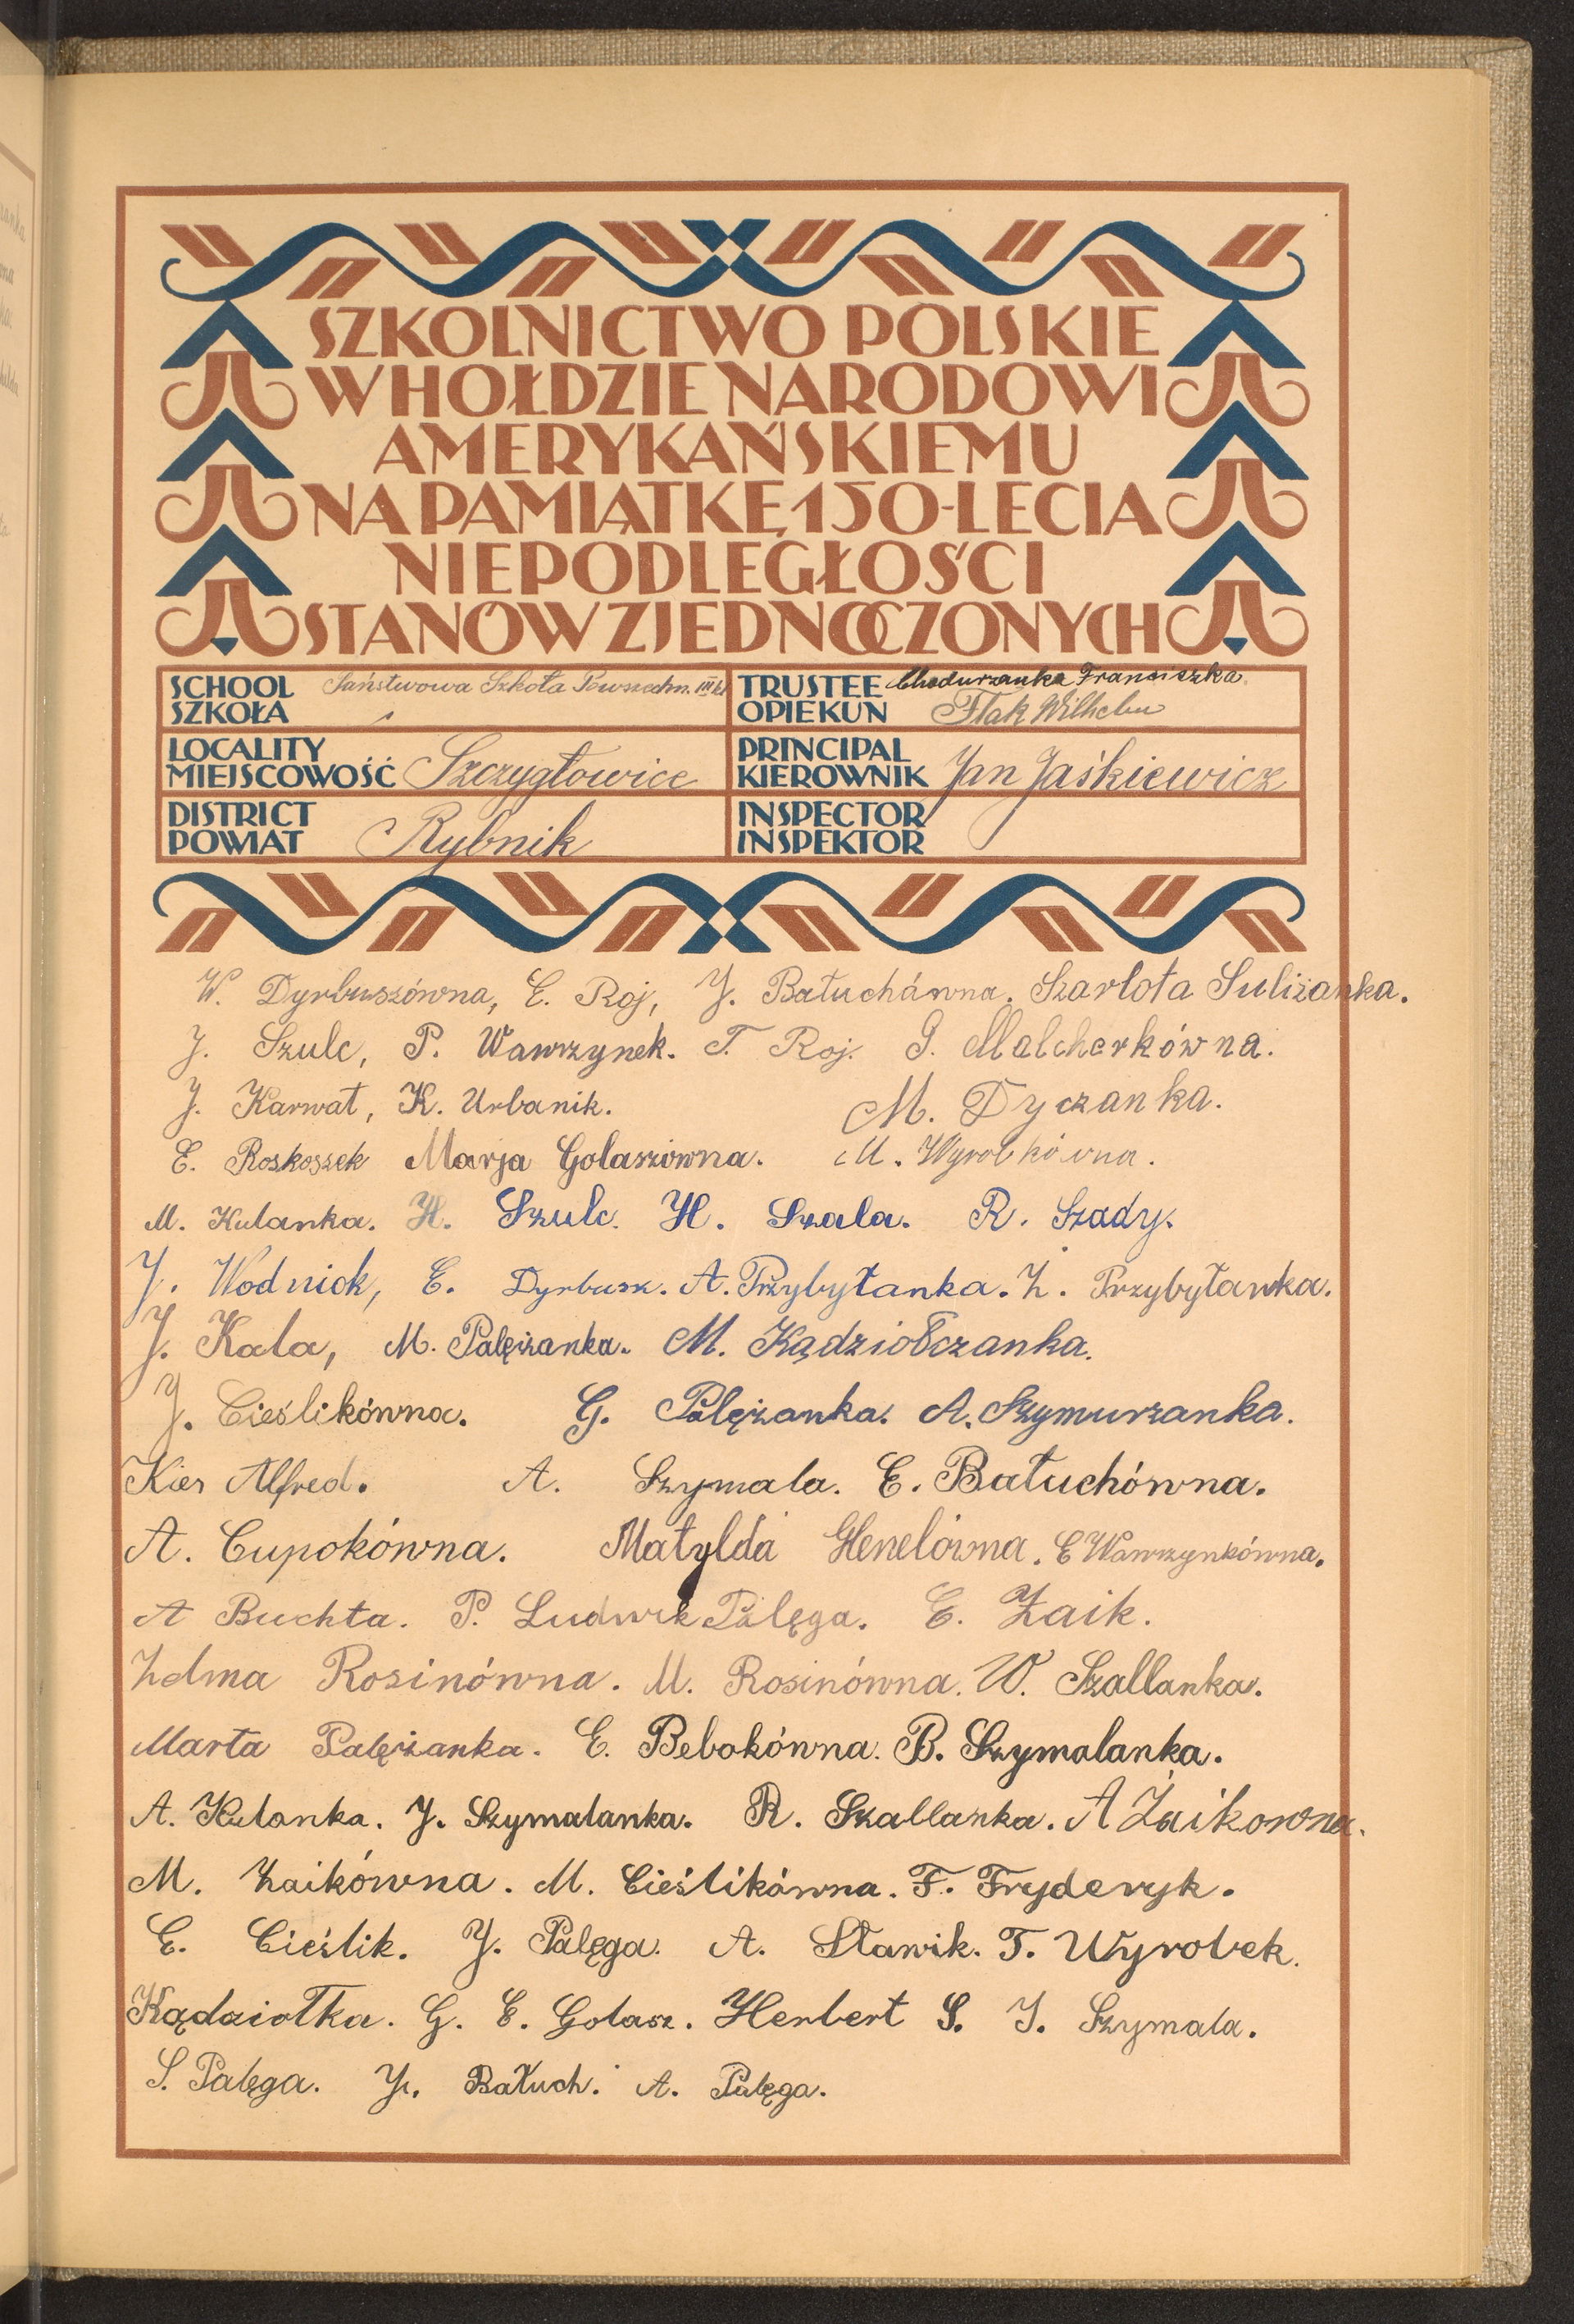 SZKOLNICTWO POLSKIE
W HOŁDZIE NARODOWI
AMERYKAŃSKIEMU
NA PAMIĄTKĘ 150-LECIA
NIEPODLEGŁOŚCI
STANÓW ZJEDNOCZONYCH
SCHOOL
SZKOŁA
Państwowa Szkoła Powszechn. III kl
TRUSTEE
OPIEKUN
Chodurzanka Franciszka
Flak Wilhelm
LOCALITY
MIEJSCOWOŚĆ
Szczygłowice
PRINCIPAL
KIEROWNIK
Jan Jaśkiewicz
DISTRICT
POWIAT
Rybnik
INSPECTOR
INSPEKTOR
W. Dyrbuszówna, E. Roj, J. Bałuchówna. Szarlota Suliżanka.
J. Szulc, P. Wawrzynek. T. Roj. G. Malcherkówna.
J. Karwat, K. Urbanik. M. Dyczanka.
E. Roskoszek Marja Golaszówna. M. Wyrobkówna.
M. Kulanka. H. Szulc. H. Szala. R. Szady.
J. Wodniok, E. Dyrbusz. A. Przybyłanka. Ż. Przybyłanka.
J. Kala, M. Palężanka. M. Kądziołczanka.
J. Cieślikówna. G. Palężanka. A. Szymurzanka.
Kies Alfred. A. Szymala. E. Bałuchówna.
A. Cupokówna. Matylda Henelówna. E Wawrzynkówna.
A Buchta. P. Ludwik Palęga. E. Zaik.
Zelma Rosinówna. M. Rosinówna. W. Szallanka.
Marta Palężanka. E. Bebokówna. B. Szymalanka.
A. Kulanka. J. Szymalanka. R. Szallanka. A Żaikowna.
M. Zaikówna. M. Cieślikówna. F. Fryderyk.
E. Cieślik. J. Palęga. A. Sławik. T. Wyrobek.
Kądziołka. G. E. Golasz. Herbert S. J. Szymala.
S. Palęga. J. Bałuch. A. Palęga.